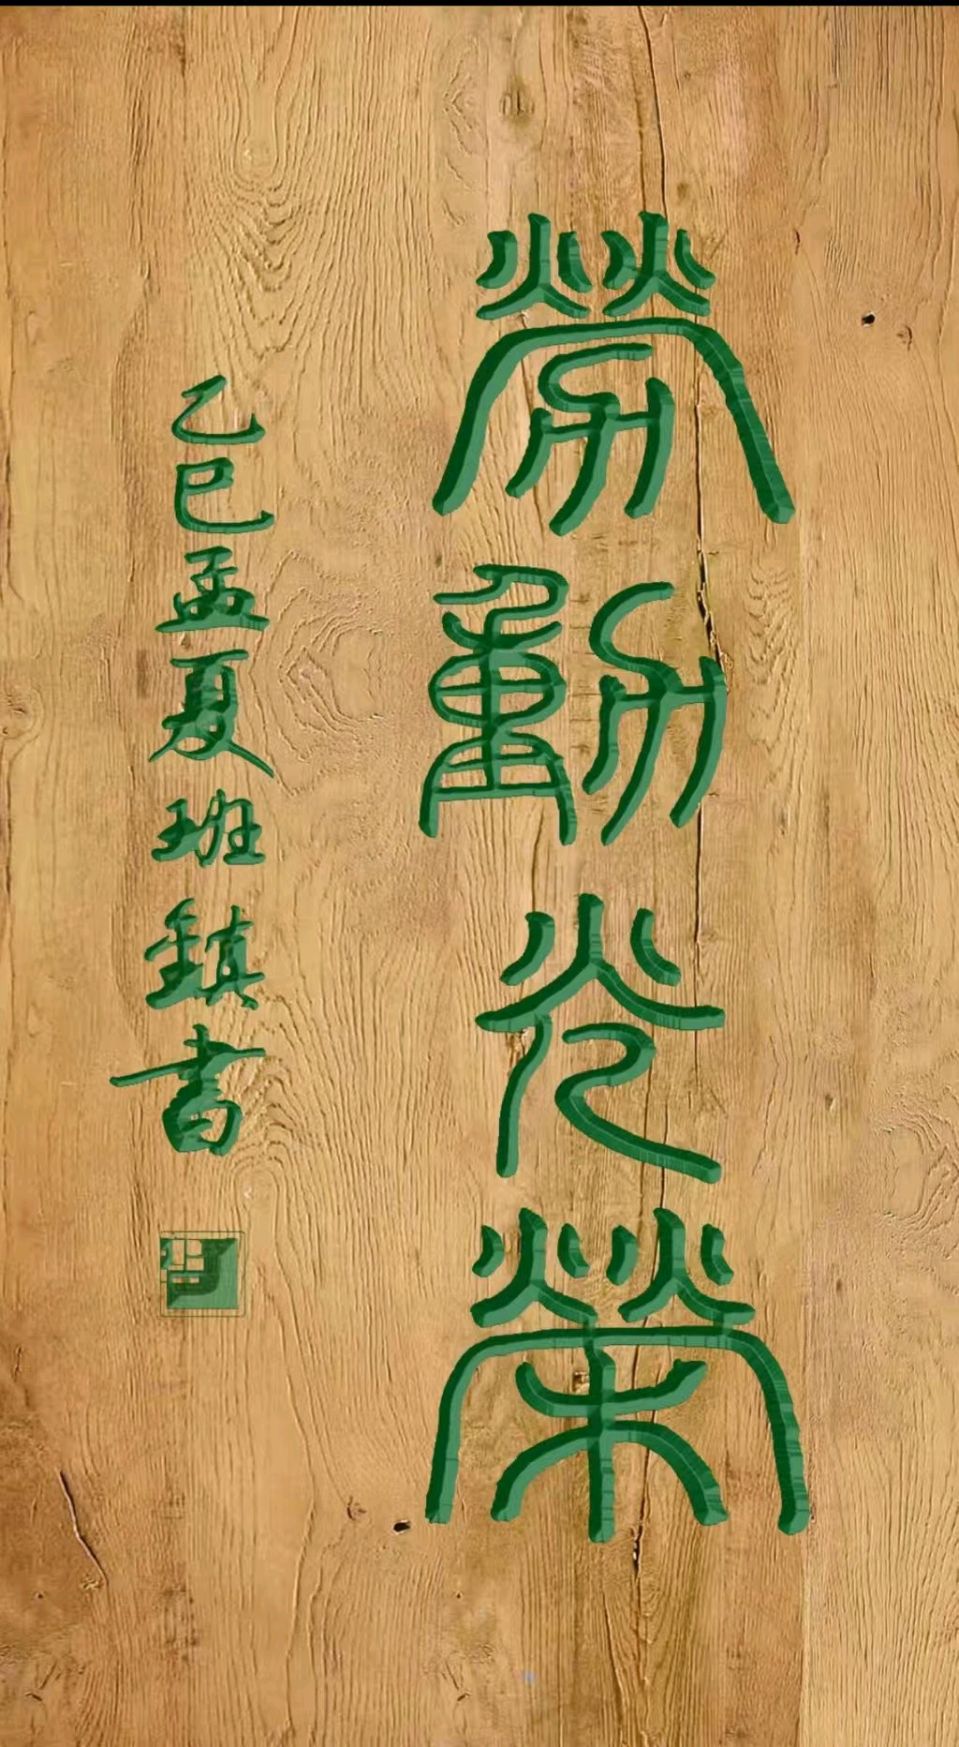 勞動光榮
乙巳孟夏班鎮書